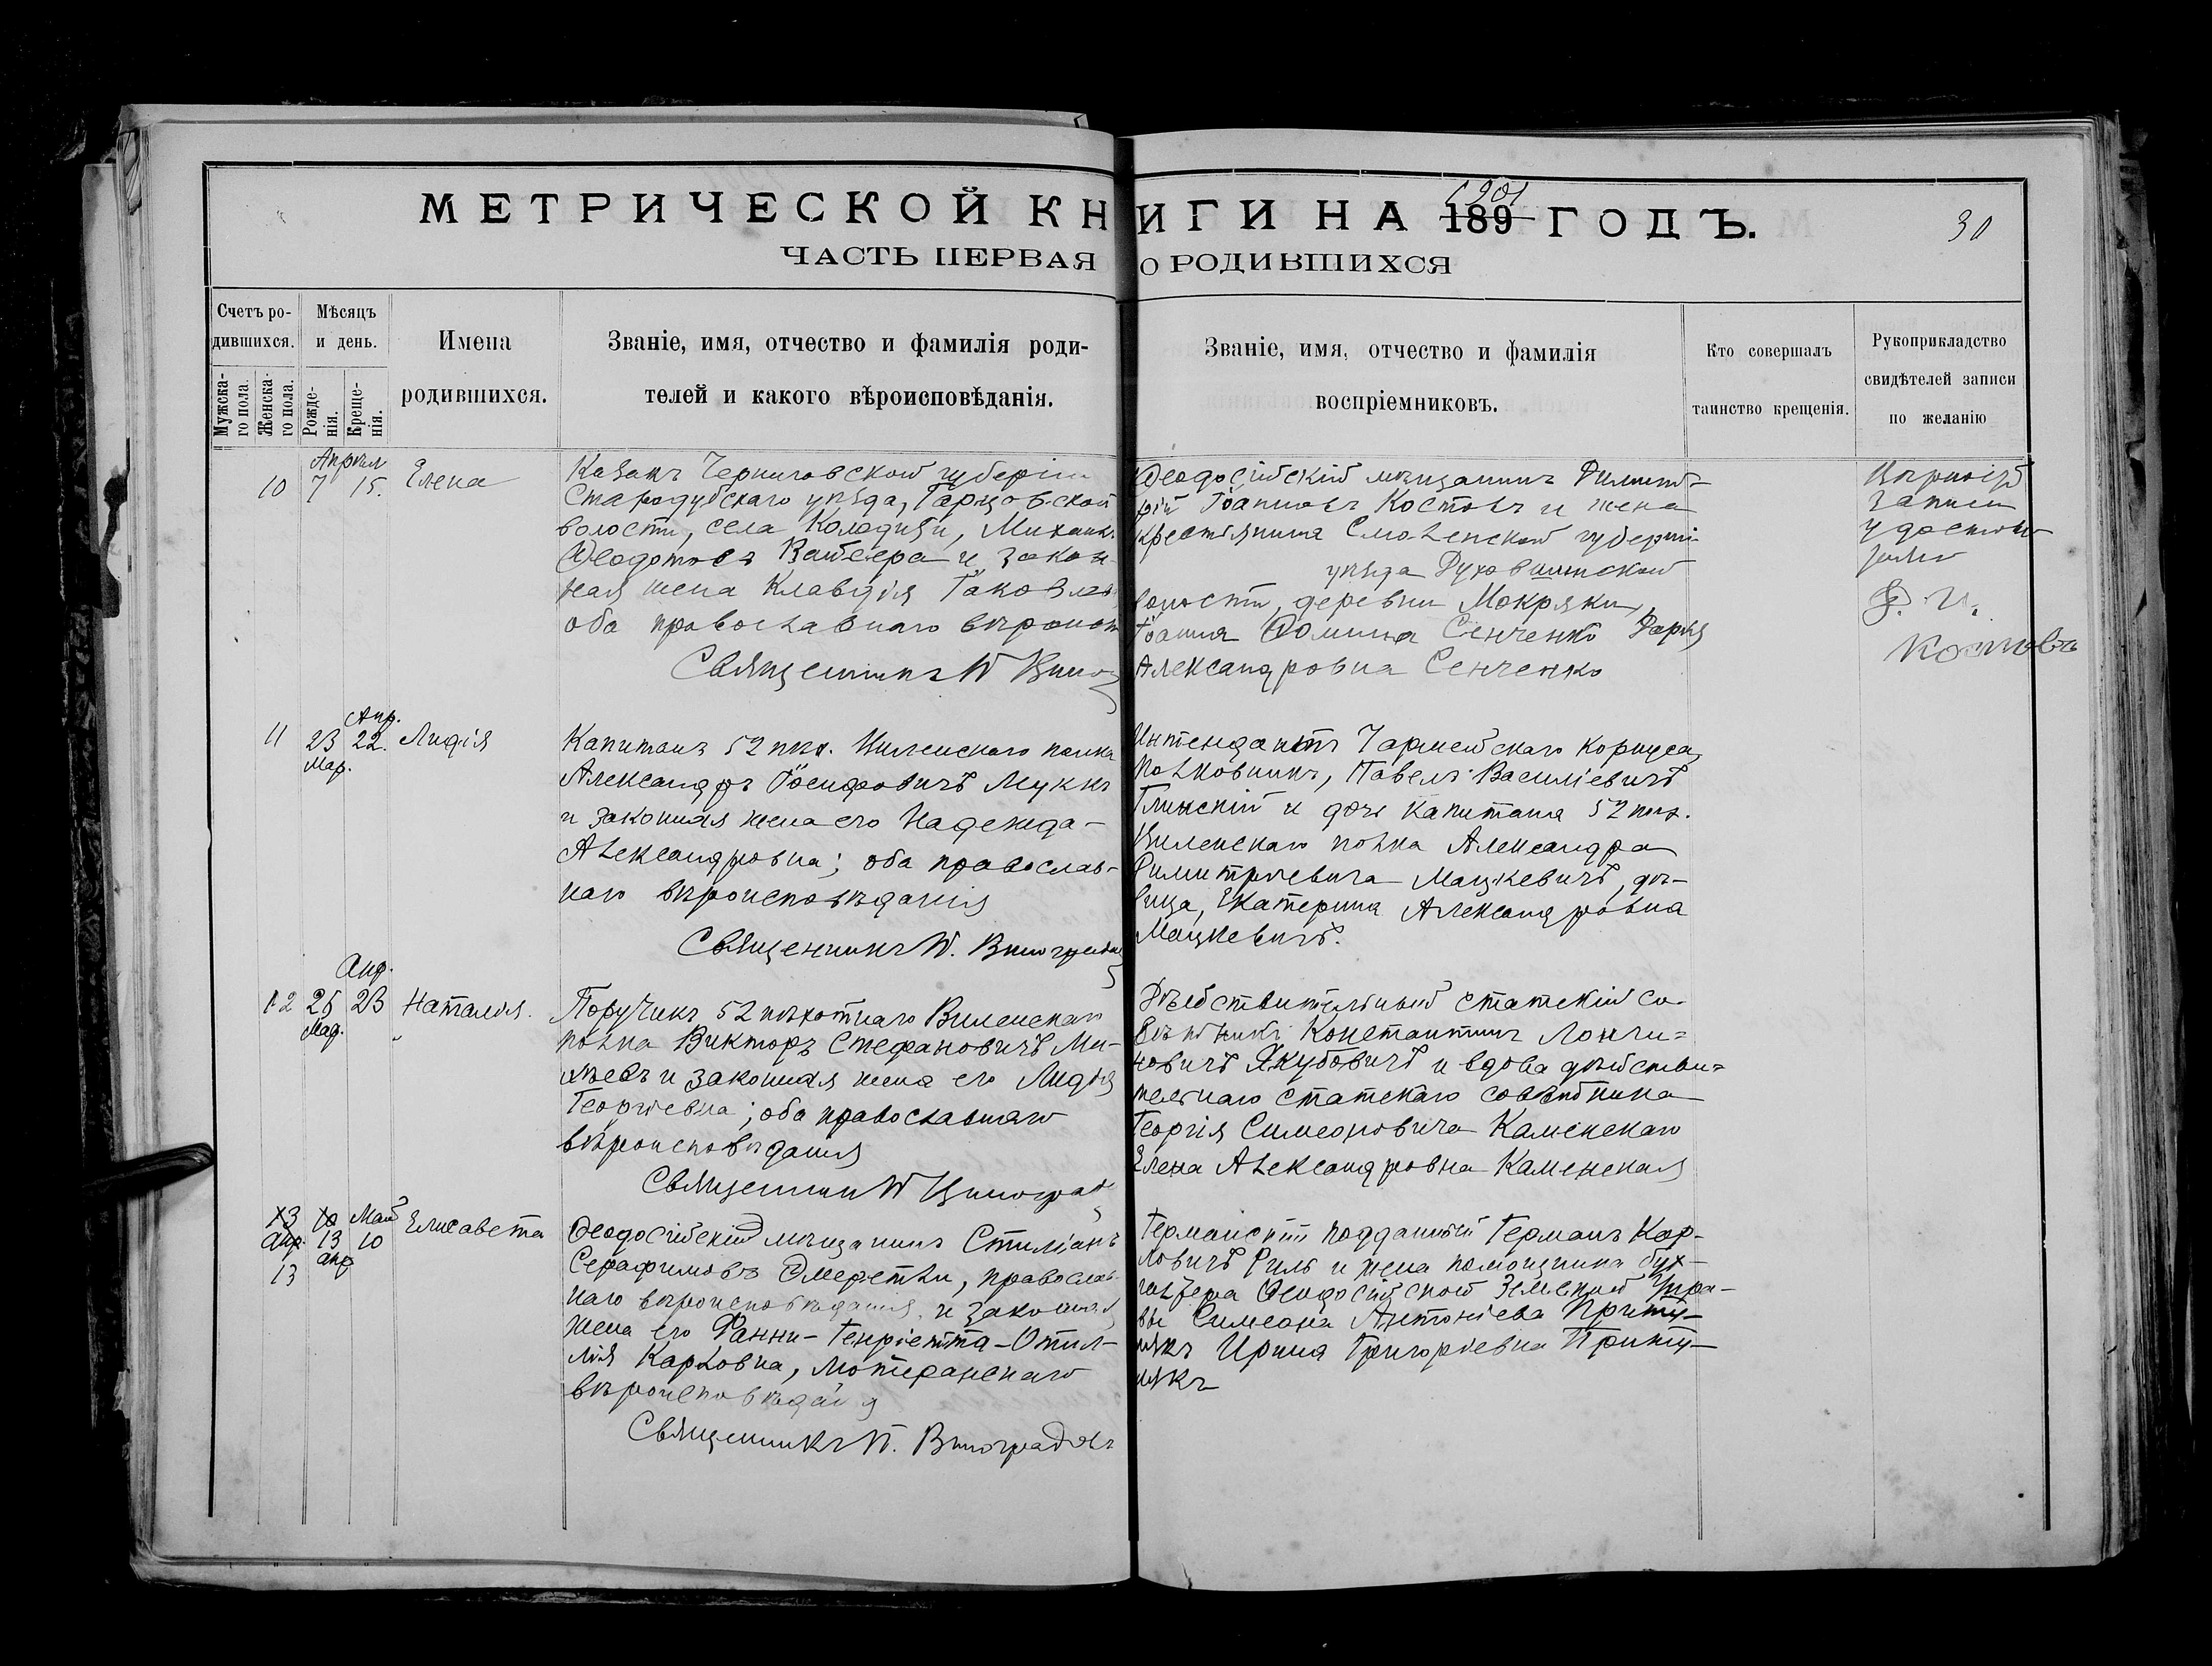 МЕТРИЧЕСКОЙ КНИГИ НА 189 1901 ГОДЪ.
30
ЧАСТЬ ПЕРВАЯ О РОДИВШИХСЯ
Счетъ ро-
дившихся.
Мужска-
го пола.
Женска-
го пола.
Мѣсяцъ
и день.
Рожде-
нія.
Креще-
нія.
Имена
родившихся.
Званіе, имя, отчество и фамилія роди-
телей и какого вѣроисповѣданія.
Званіе, имя, отчество и фамилія
воспріемниковъ.
Кто совершалъ
таинство крещенія.
Рукоприкладство
свидѣтелей записи
по желанію
Апрѣл
10 7 15. Елена
Казакъ Черниговской губерніи
Стародубскаго уѣзда, Гарцовской
волости, села Колодизи, Михаилъ
Ѳеодотовъ и закон-
ная жена Клавдія Іаковлев
оба православнаго вѣроисп
Священникъ П Вино
Ѳеодосійскій мѣщанинъ Димит-
рій Іоанновъ Костовъ и жена
крестьянина Смоленской губерніи
уѣзда Духовщинской
волости, деревни Мокряки,
Іоанна Сенченко Дарья
Александровна Сенченко
записи
удостовѣ
ряю
Д. И.
Костовъ
Апр.
11 23 22. Лидія
Мар.
Капитанъ 52 пѣх. Виленскаго полка
Александръ Іосифовичъ Муккъ
и законная жена его Надежда
Александровна; оба православ-
наго вѣроисповѣданія
Священникъ П. Виноградов
Интендантъ 7 армейскаго корпуса,
полковникъ, Павелъ Василіевичъ
Глинскій и дочь капитана 52 пѣх.
Виленскаго полка Александра
Димитріевича Мацкевичъ, дѣ-
вица, Екатерина Александровна
Мацкевичъ.
Апр.
12 25 23 Наталія.
Мар.
Поручикъ 52 пѣхотнаго Виленскаго
полка Викторъ Стефановичъ Ми-
хѣевъ и законная жена его Лидія
Георгіевна; оба православнаго
вѣроисповѣданія
Священникъ П Виноградов
Дѣйствительный статскій со-
вѣтникъ Константинъ Лонги-
новичъ Якубовичъ и вдова дѣйстви-
тельнаго статскаго совѣтника
Георгія Симеоновича Каменскаго
Елена Александровна Каменская
13 10 Май Елисавета
Апр. 13 10
13 апр
Ѳеодосійскій мѣщанинъ Стиліанъ
Серафимовъ Эмеретли, православ-
наго вѣроисповѣданія и законная
жена его Фанни-Генріетта-Отил-
лія Карловна, лютеранскаго
вѣроисповѣданія
Священникъ П. Виноградовъ
Германскій подданный Германъ Кар-
ловичъ Риль и жена помощника бух-
галтера Ѳеодосійской Земской Упра-
вы Симеона Антоніева Приту-
лякъ Ирина Григоріевна Приту-
лякъ